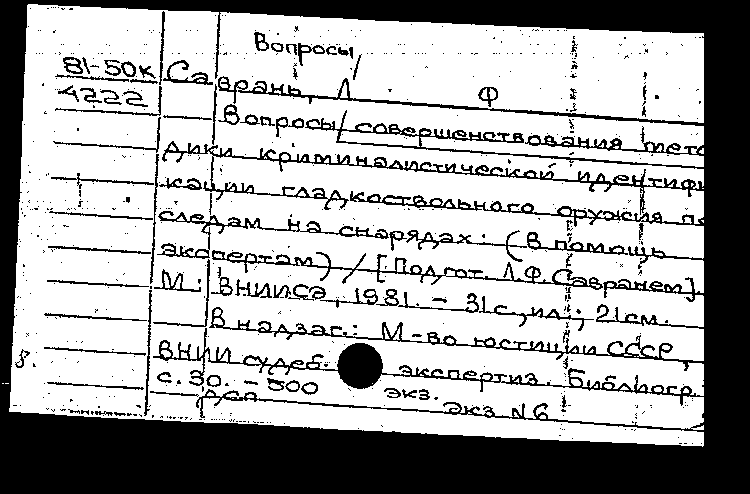 Вопросы
81-50к
4222
Саврань, Л Ф
Вопросы/совершенствования мето
дики криминалистической идентифи
кации гладкоствольного оружия по
следам на снарядах: (В помощь
экспертам) / [Подгот. Л.Ф.Савранем].
М.: ВНИИСЭ, 1981. - 31с.,ил.; 21см.
В надзаг.: М-во юстиции СССР,
ВНИИ судеб. экспертиз. Библиогр.
с. 30. - 500 экз.
ДСП экз N6
8.